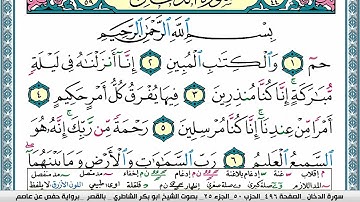 سورة الدخان
بِسْمِ اللَّهِ الرَّحْمَٰنِ الرَّحِيمِ
حمٓ ١ وَٱلْكِتَٰبِ ٱلْمُبِينِ ٢ إِنَّآ أَنزَلْنَٰهُ فِى لَيْلَةٍ
مُّبَٰرَكَةٍ إِنَّا كُنَّا مُنذِرِينَ ٣ فِيهَا يُفْرَقُ كُلُّ أَمْرٍ حَكِيمٍ ٤
أَمْرًا مِّنْ عِندِنَآ إِنَّا كُنَّا مُرْسِلِينَ ٥ رَحْمَةً مِّن رَّبِّكَ إِنَّهُۥ هُوَ
ٱلسَّمِيعُ ٱلْعَلِيمُ ٦ رَبِّ ٱلسَّمَٰوَٰتِ وَٱلْأَرْضِ وَمَا بَيْنَهُمَآ
سورة الدخان - الصفحة ٤٩٦ - الحزب ٥٠ - الجزء ٢٥ - بصوت الشيخ ابو بكر الشاطري - بالقصر - برواية حفص عن عاصم